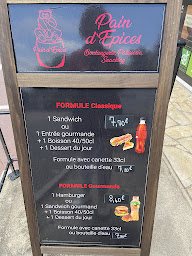 Pain
d'Epices
Boulangerie Pâtisserie
Snacking
FORMULE Classique
1 Sandwich
ou
1 Entrée gourmande
+ 1 Boisson 40/50cl
+ 1 Dessert du jour
7,70€
Formule avec canette 33cl
ou bouteille d'eau
FORMULE Gourmande
1 Hamburger
ou
1 Sandwich gourmand
+ 1 Boisson 40/50cl
+ 1 Dessert du jour
8,60€
Formule avec canette 33cl
ou bouteille d'eau